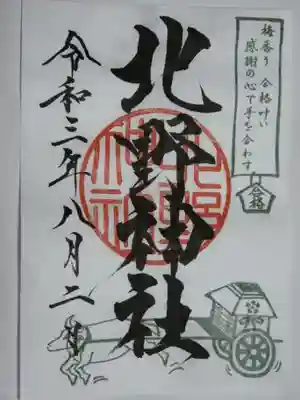 梅香り 合格叶い
感謝の心で手を合わす
合格
北野神社
令和三年八月二日